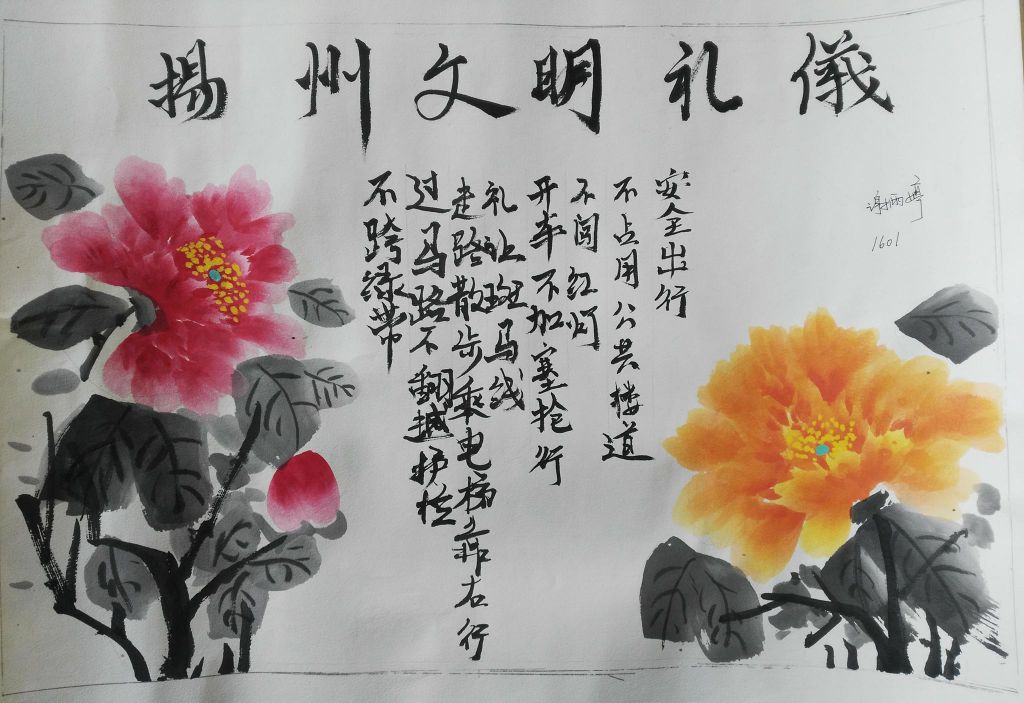 揚州文明礼儀
安全出行
不占用公共楼道
不闯红灯
开车不加塞抢行
礼让斑马线
走路散步乘电梯靠右行
过马路不翻越护栏
不跨绿带
1601